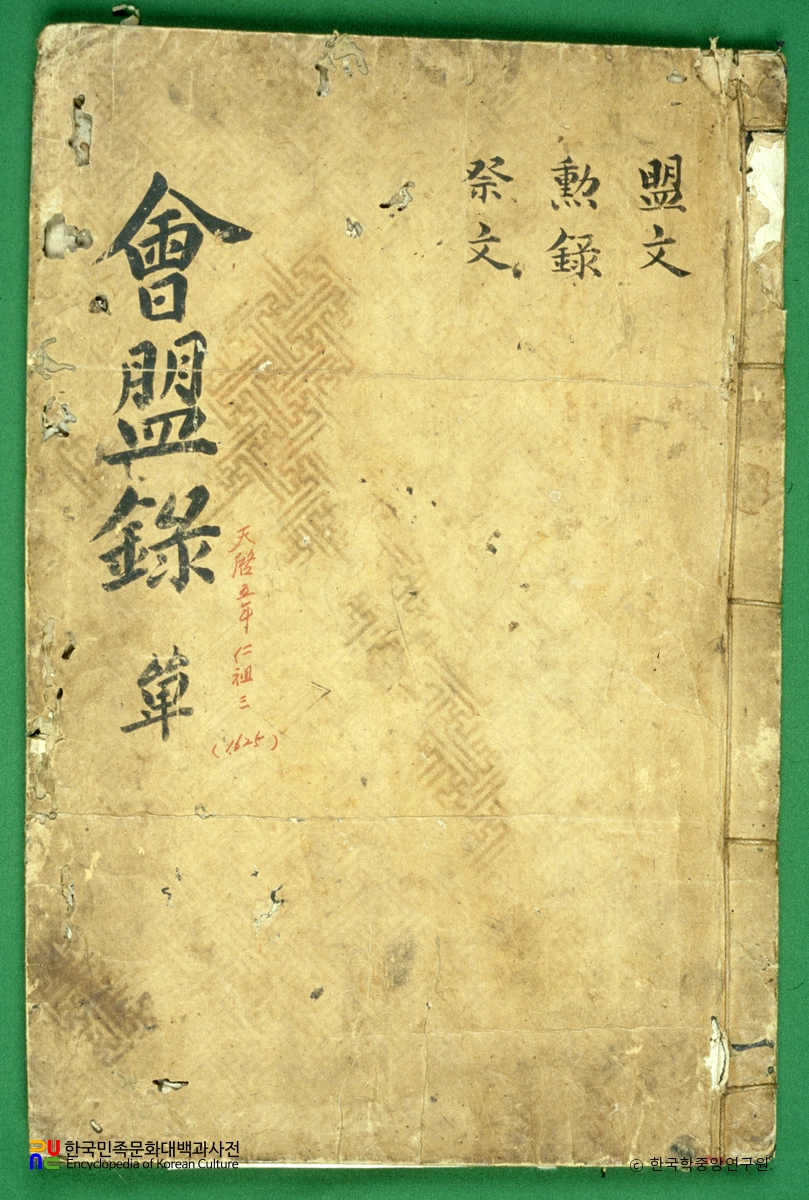 盟文
勲錄
祭文
會盟錄 單
天啓五年 仁祖三
(1625)
一
한국민족문화대백과사전
Encyclopedia of Korean Culture
© 한국학중앙연구원